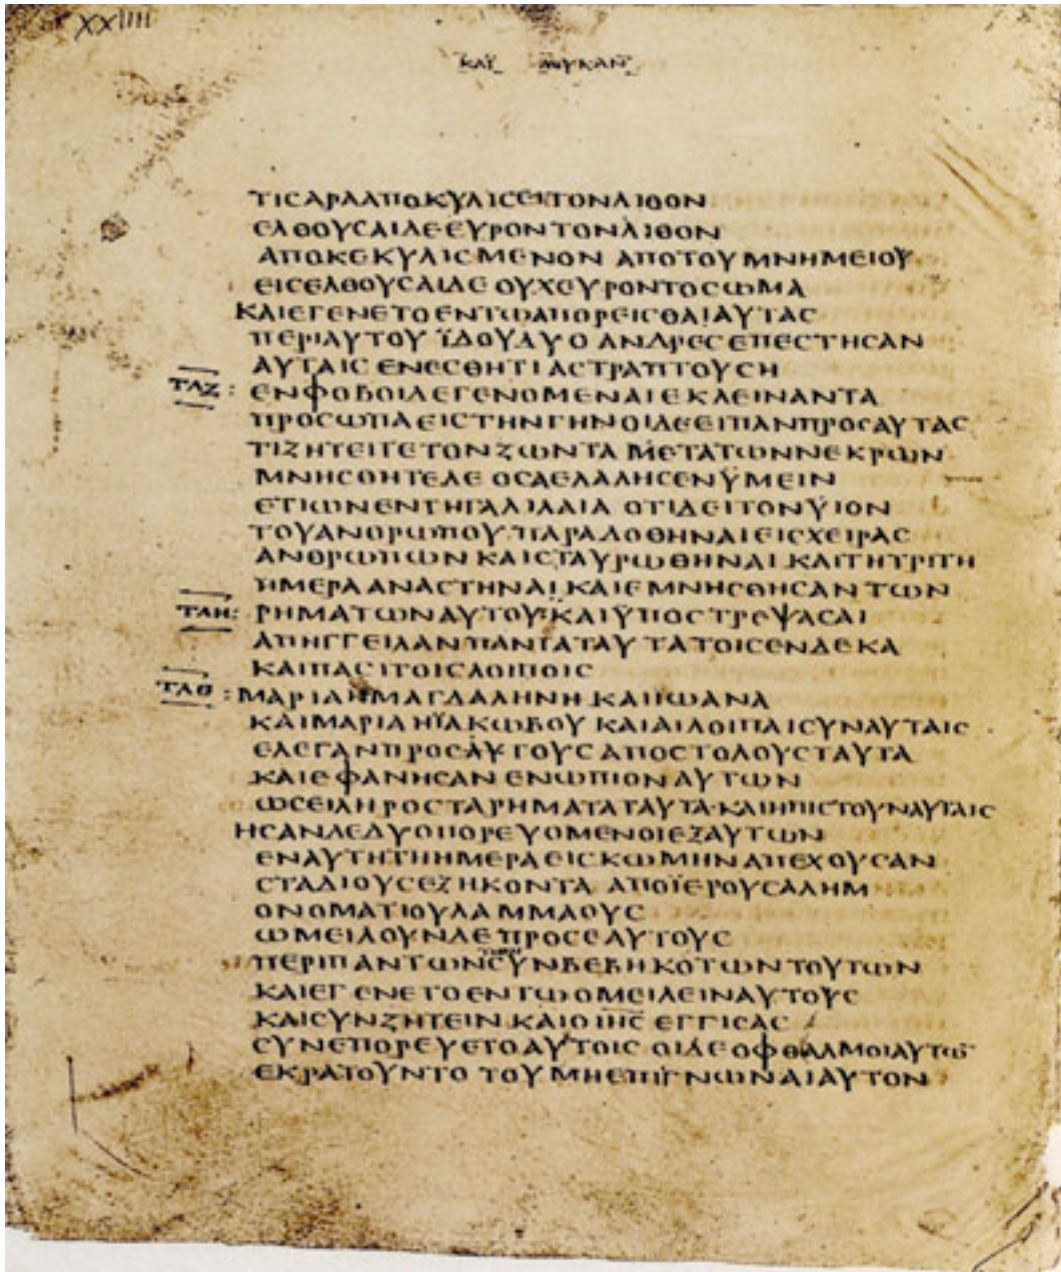 XXIIII
ΚΑΤ ΛΟΥΚΑΝ
ΤΙСΑΡΑΑΠΟΚΥΛΙСΕΙΤΟΝΛΙΘΟΝ
ΕΛΘΟΥСΑΙΔΕΕΥΡΟΝΤΟΝΛΙΘΟΝ
ΑΠΟΚΕΚΥΛΙСΜΕΝΟΝ ΑΠΟΤΟΥΜΝΗΜΕΙΟΥ
ΕΙСΕΛΘΟΥСΑΙΔΕ ΟΥΧΕΥΡΟΝΤΟСΩΜΑ
ΚΑΙΕΓΕΝΕΤΟΕΝΤΩΑΠΟΡΕΙСΘΑΙΑΥΤΑС
ΠΕΡΙΑΥΤΟΥ ΪΔΟΥΔΥΟ ΑΝΔΡΕСΕΠΕСΤΗСΑΝ
ΑΥΤΑΙС ΕΝΕСΘΗΤΙ ΑСΤΡΑΠΤΟΥСΗ
ΤΛΖ: ΕΝΦΟΒΟΙΔΕΓΕΝΟΜΕΝΑΙΕΚΛΕΙΝΑΝΤΑ
ΠΡΟСΩΠΑΕΙСΤΗΝΓΗΝΟΙΔΕΕΙΠΑΝΠΡΟСΑΥΤΑС
ΤΙΖΗΤΕΙΤΕΤΟΝΖΩΝΤΑ ΜΕΤΑΤΩΝΝΕΚΡΩΝ
ΜΝΗСΘΗΤΕΔΕ ΟСΑΕΛΑΛΗСΕΝΫΜΕΙΝ
ΕΤΙΩΝΕΝΤΗΓΑΛΙΛΑΙΑ ΟΤΙΔΕΙΤΟΝΫΙΟΝ
ΤΟΥΑΝΘΡΩΠΟΥ ΠΑΡΑΔΟΘΗΝΑΙΕΙСΧΕΙΡΑС
ΑΝΘΡΩΠΩΝ ΚΑΙСΤΑΥΡΩΘΗΝΑΙ ΚΑΙΤΗΤΡΙΤΗ
ΗΜΕΡΑΑΝΑСΤΗΝΑΙ ΚΑΙΕΜΝΗСΘΗСΑΝ ΤΩΝ
ΤΛΗ: ΡΗΜΑΤΩΝΑΥΤΟΥ:ΚΑΙΫΠΟСΤΡΕΨΑСΑΙ
ΑΠΗΓΓΕΙΛΑΝΠΑΝΤΑΤΑΥΤΑΤΟΙСΕΝΔΕΚΑ
ΚΑΙΠΑСΙΤΟΙСΛΟΙΠΟΙС
ΤΛΘ: ΜΑΡΙΑΗΜΑΓΔΑΛΗΝΗ ΚΑΙΙΩΑΝΑ
ΚΑΙΜΑΡΙΑΗΪΑΚΩΒΟΥ ΚΑΙΑΙΛΟΙΠΑΙСΥΝΑΥΤΑΙС
ΕΛΕΓΑΝΠΡΟСΑΥΤΟΥС ΑΠΟСΤΟΛΟΥСΤΑΥΤΑ
ΚΑΙΕΦΑΝΗСΑΝ ΕΝΩΠΙΟΝΑΥΤΩΝ
ΩСΕΙΛΗΡΟСΤΑΡΗΜΑΤΑΤΑΥΤΑ·ΚΑΙΗΠΙСΤΟΥΝΑΥΤΑΙС
ΗСΑΝΔΕΔΥΟΠΟΡΕΥΟΜΕΝΟΙΕΞΑΥΤΩΝ
ΕΝΑΥΤΗΤΗΗΜΕΡΑ ΕΙСΚΩΜΗΝΑΠΕΧΟΥСΑΝ
СΤΑΔΙΟΥСΕΞΗΚΟΝΤΑ ΑΠΟΪΕΡΟΥСΑΛΗΜ
ΟΝΟΜΑΤΙΟΥΛΑΜΜΑΟΥС
ΩΜΕΙΛΟΥΝΔΕ ΠΡΟСΕΑΥΤΟΥС
ΠΕΡΙΠΑΝΤΩΝСΥΝΒΕΒΗΚΟΤΩΝΤΟΥΤΩΝ
ΚΑΙΕΓΕΝΕΤΟΕΝΤΩΟΜΕΙΛΕΙΝΑΥΤΟΥС
ΚΑΙСΥΝΖΗΤΕΙΝ ΚΑΙΟΙΗС ΕΓΓΙСΑС
СΥΝΕΠΟΡΕΥΕΤΟΑΥΤΟΙС ΟΙΔΕΟΦΘΑΛΜΟΙΑΥΤΩ̅
ΕΚΡΑΤΟΥΝΤΟ ΤΟΥΜΗΕΠΙΓΝΩΝΑΙΑΥΤΟΝ